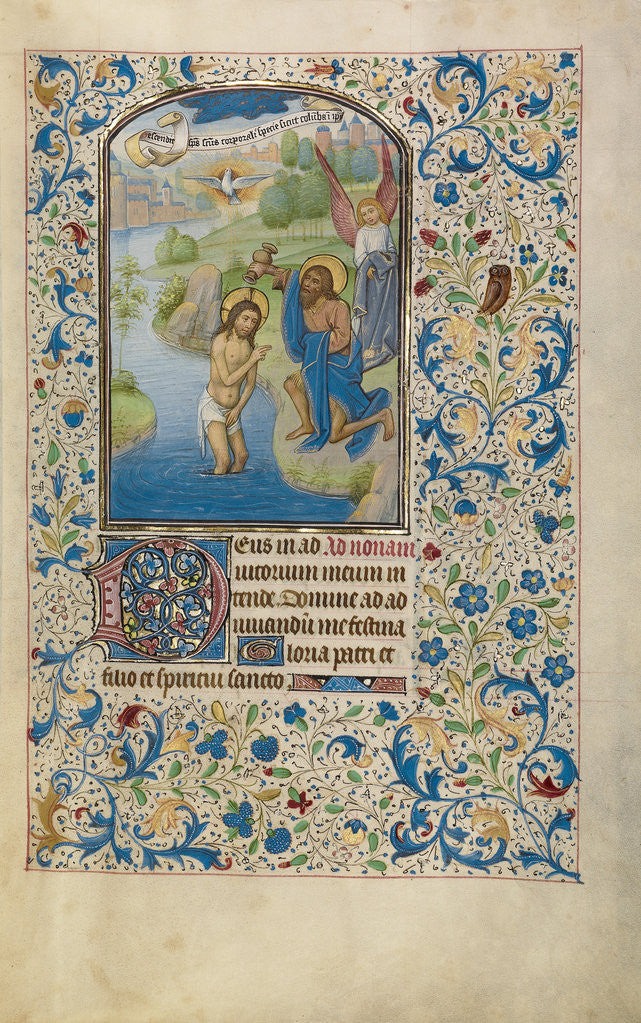 escendit sps scus corporali specie sicut columba i ipm
Deus in ad Ad nonam
iutorium meum in
tende. Domine ad ad
iuuandū me festina
Gloria patri et
filio et spiritui sancto